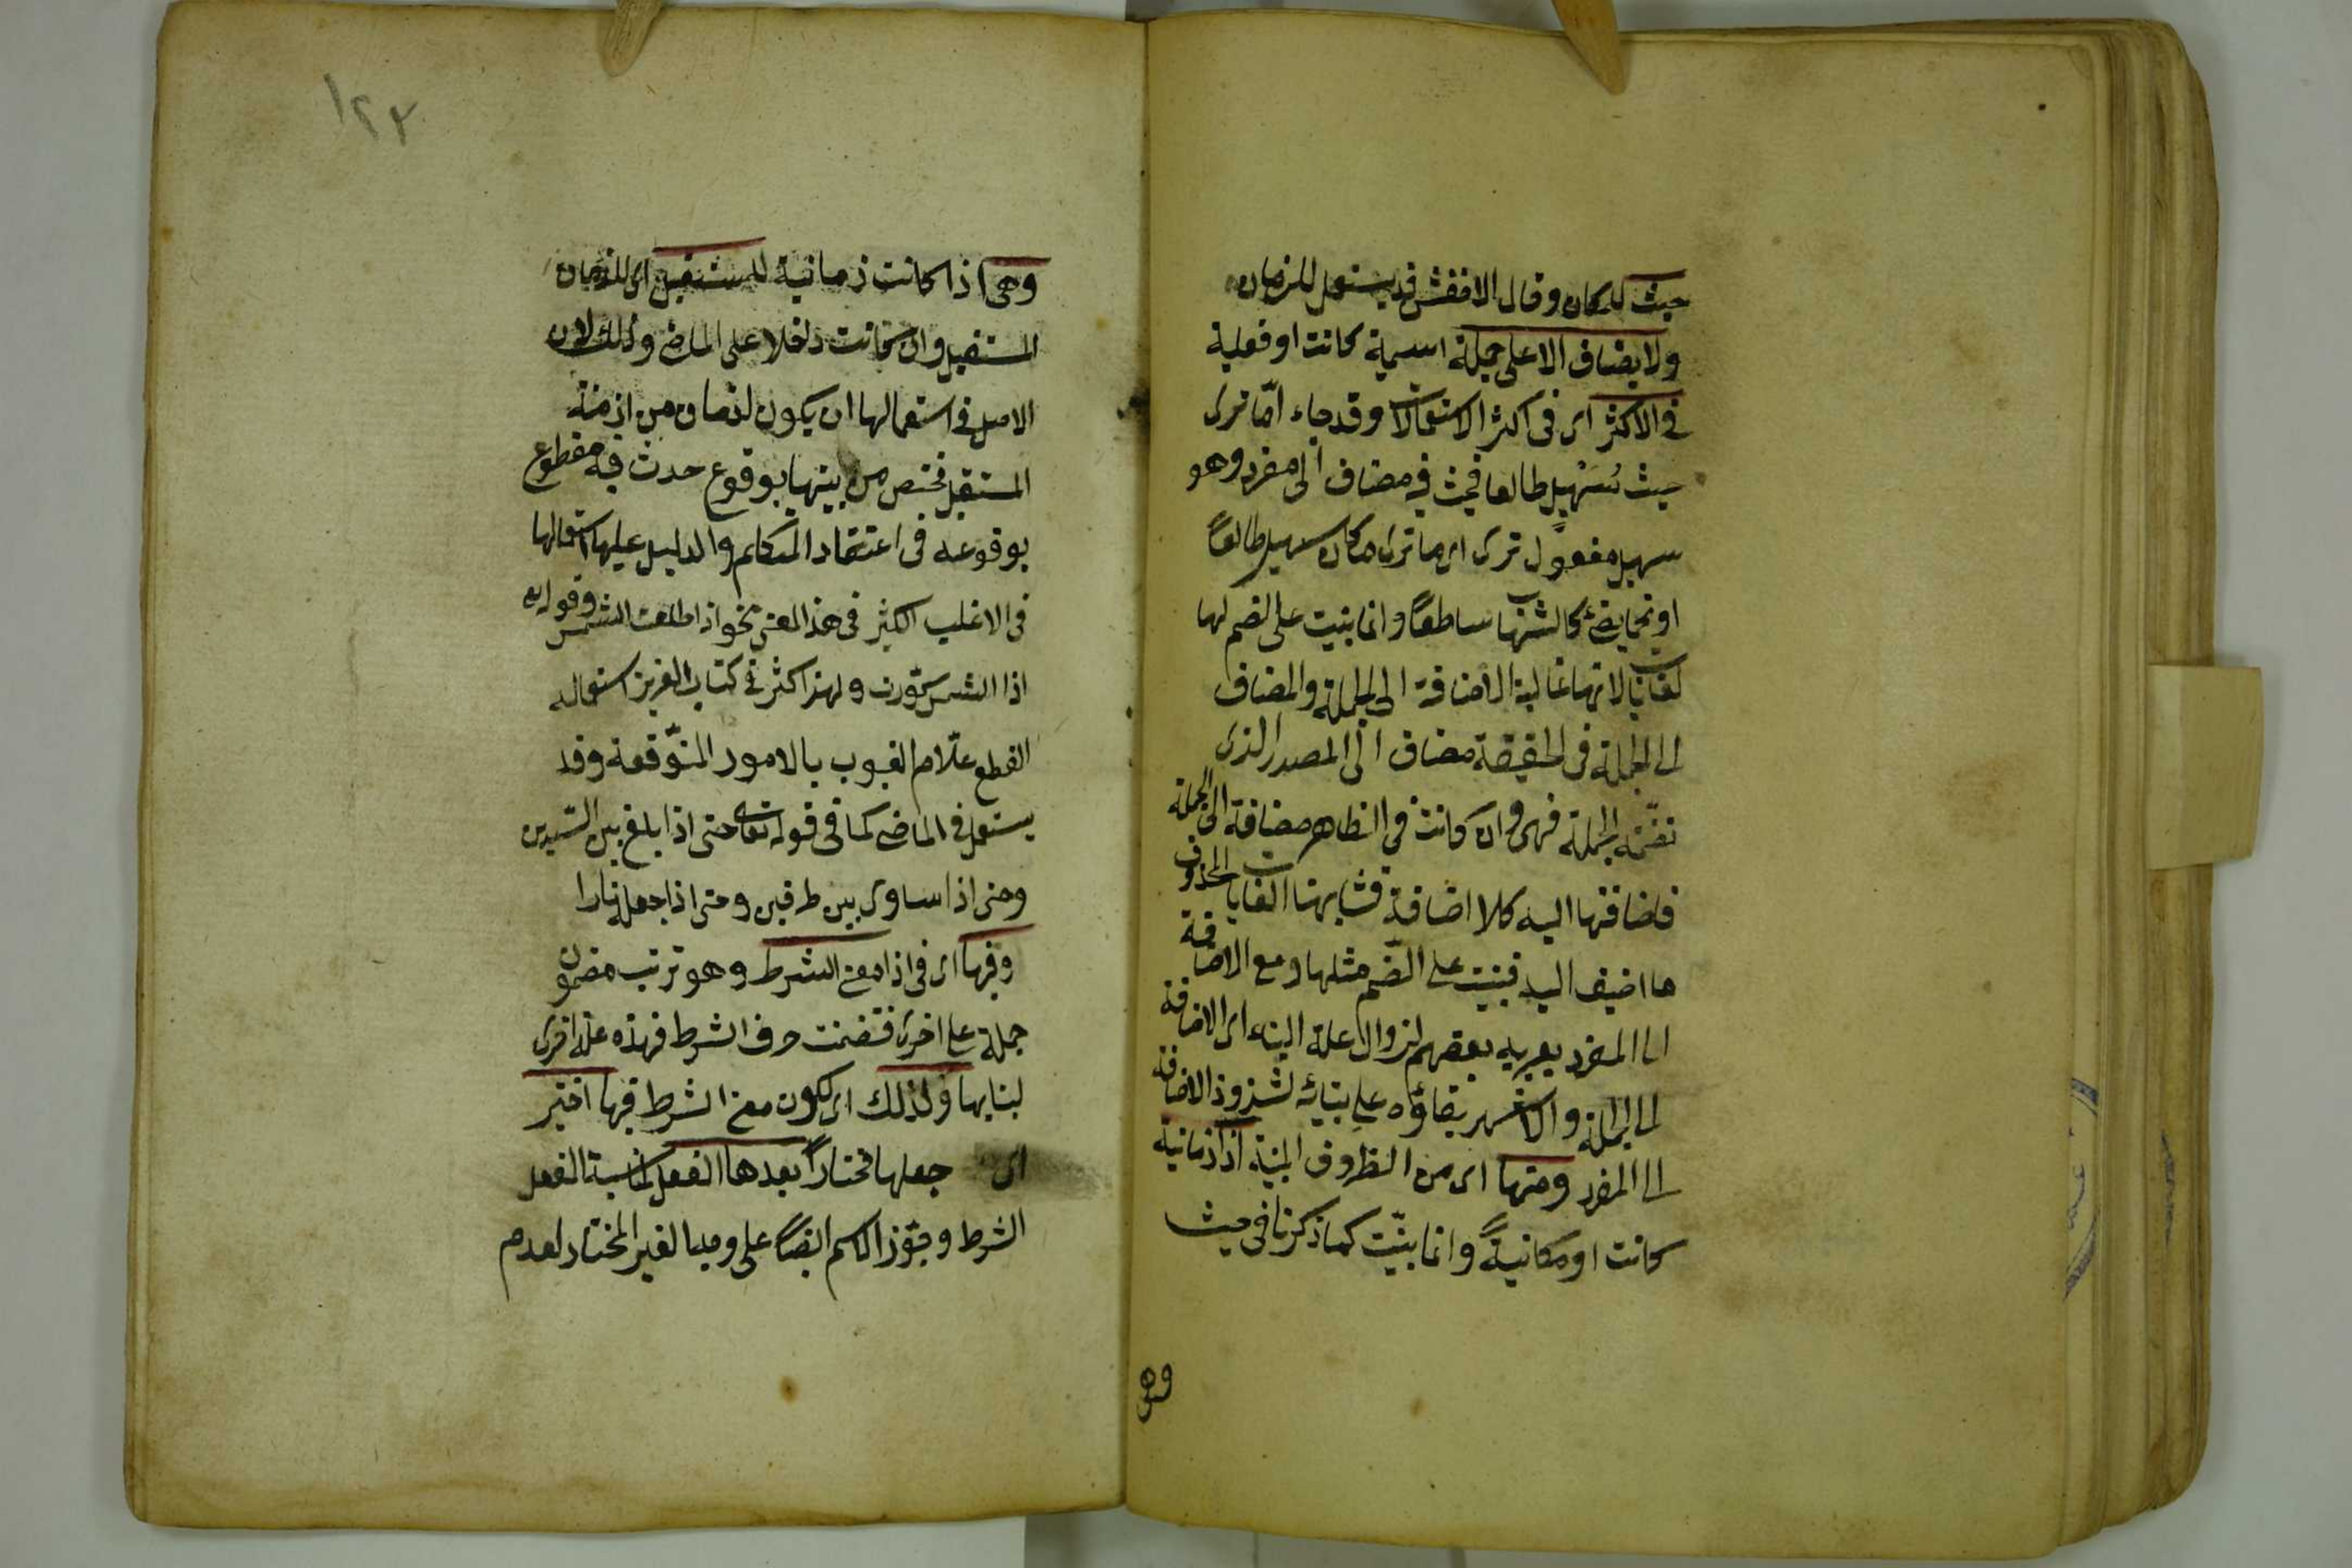 حيث للمكان وقال الاخفش قد يستعمل للزمان
ولا يضاف الا على جملة اسمية كانت او فعلية
في الاكثر اى فى اكثر الاستعمالات وقد جاء امّا ترى
حيث سُهيل طالعا فحيث فيه مضاف الى مفرد وهو
سهيل مفعول ترى اى ما ترى مكان سهيل طالعاً
او نجما يضئ كالشهاب ساطعاً وانما بنيت على الضم لها
لغايات لانها غالبة الاضافة الى الجملة والمضاف
الى الجملة فى الحقيقة مضاف الى المصدر الذى
تضمّنه الجملة فهى وان كانت في الظاهر مضافة الى الجملة
فاضافتها اليه كلا اضافة فشابهتا الغايات المحذوف
ما اضيف اليه فبنيت على الضّم مثلها ومع الاضافة
الى المفرد يعربه بعضهم لزوال علة البناء اى الاضافة
الى الجملة والاشهر بقاؤه على بنائه لشذوذ الاضافة
الى المفرد ومنها اى من الظروف المبنية اذا زمانية
كانت او مكانيةً وانما بنيّت كما ذكرنا فى حيث
وهى
١٢٢
وهى اذا كانت زمانية للمستقبل اى للزمان
المستقبل وان كانت داخلا على الماضى وذلك لان
الاصل فى استعمالها ان يكون لزمان من ازمنة
المستقبل مختص من بينها بوقوع حدث فيه مقطوع
بوقوعه فى اعتقاد المتكلم والدليل عليها استعمالها
فى الاغلب الكثير فى هذا المعنى نحو اذا طلعت الشمس وقوله تع
اذا الشمس كوّرت ولهذا كثر فى كتاب العزيز استعماله
القطع علّام الغيوب بالامور المتوّقعة وقد
يستعمل فى الماضى كما فى قوله تعالى حتى اذا بلغ بين السّدين
وحتى اذا ساوى بين طرفين وحتى اذا جعله نارا
وفيها اى فى اذا معنى الشرط وهو ترتب مضمون
جملة على اخرى فتضمنت حرف الشرط فهذه علة اخرى
لبنايها ولذلك اى لكون معنى الشرط فيها اختير
اى جعلها مختاراً بعدها الفعل لمناسبة الفعل
الشرط وجوّز الاسم ايضاً على وجه الغير المختار لعدم